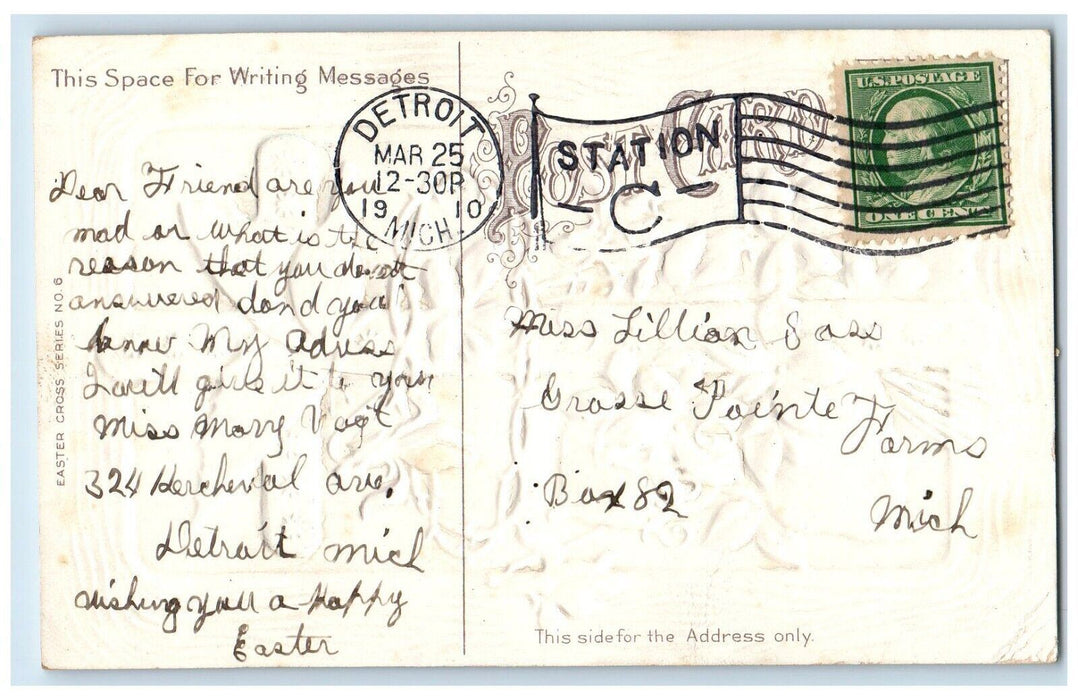 This Space For Writing Messages
Dear Friend are you
mad or what is the
reason that you do not
answered dond you
know My Adress
I will give it to you
Miss Mary Vogt
324 Kercheval ave.
Detroit Mich
wishing you a Happy
Easter
EASTER CROSS SERIES NO. 6
DETROIT
MAR 25
12-30P
1910
MICH.
STATION
C
POST CARD
U.S. POSTAGE
ONE CENT
Miss Lillian
Grosse Pointe
Farms
Box 82
Mich
This side for the Address only.